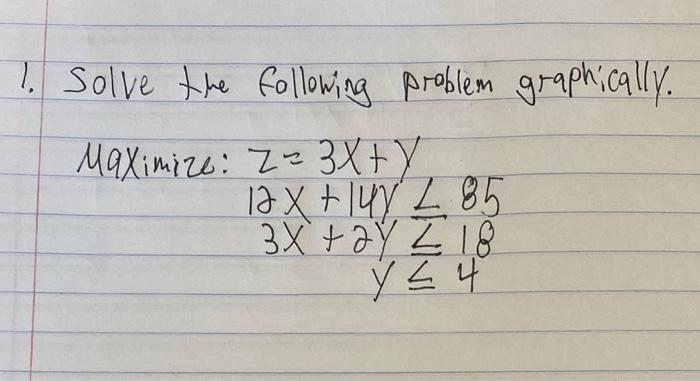 1. Solve the following problem graphically.
Maximize: z = 3X + Y
12X + 14Y ≤ 85
3X + 2Y ≤ 18
Y ≤ 4